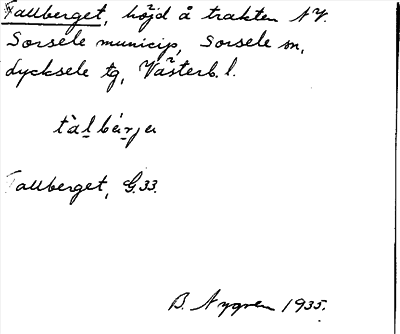 Tallberget, höjd å trakten NV.
Sorsele municip, Sorsele sn,
Lycksele tg, Västerb. l.
tàl bærjə
Tallberget, G.33.
B. Nygren 1935.